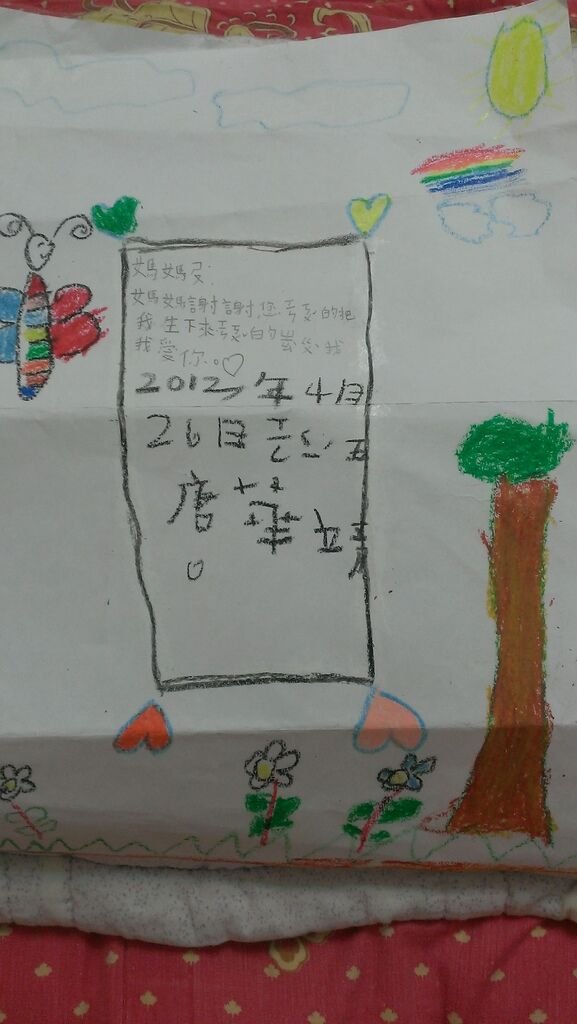 媽媽
媽媽謝謝您 的把
我生下來 的 我
我愛你。♡
2012年4月
26日 五
唐華靖
。